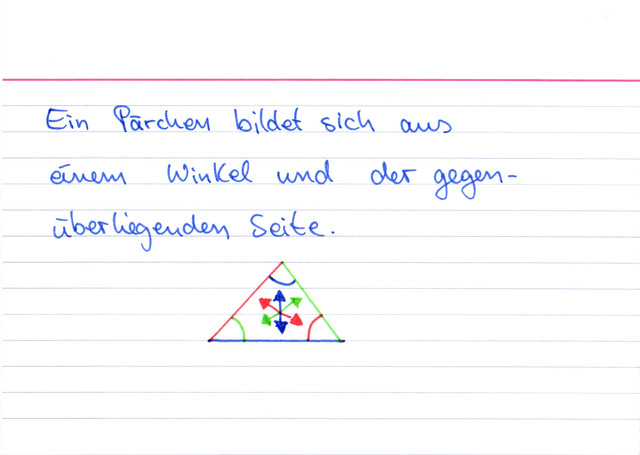 Ein Pärchen bildet sich aus
einem Winkel und der gegen-
überliegenden Seite.